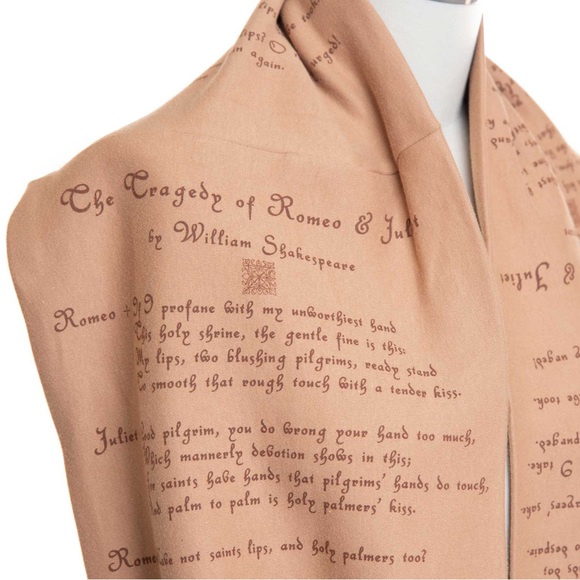 lips?
in again.
urged!
The Tragedy of Romeo & Juliet
by William Shakespeare
Romeo + If I profane with my unworthiest hand
This holy shrine, the gentle fine is this:
My lips, two blushing pilgrims, ready stand
To smooth that rough touch with a tender kiss.
Juliet Good pilgrim, you do wrong your hand too much,
Which mannerly devotion shows in this;
For saints have hands that pilgrims' hands do touch,
And palm to palm is holy palmers' kiss.
Romeo Have not saints lips, and holy palmers too?
& Juliet
urged!
he took.
purged.
I take.
prayers' sake.
to despair.